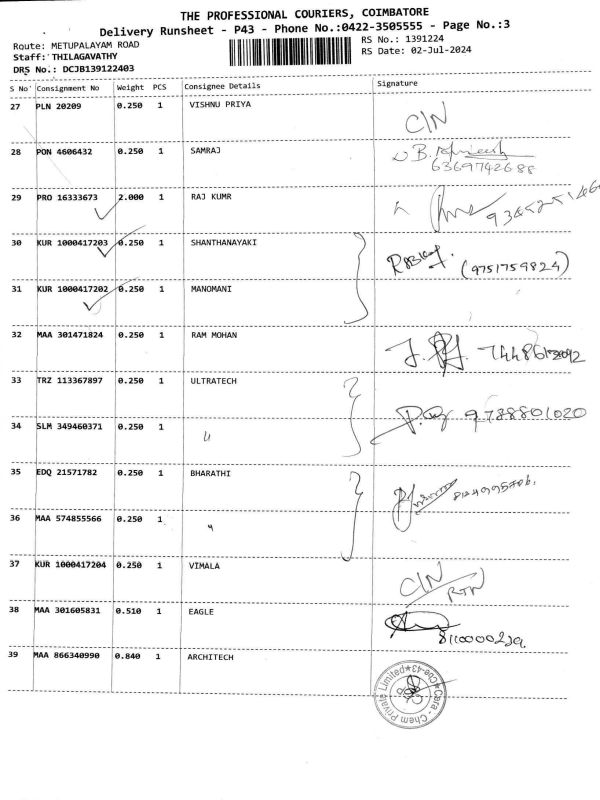 THE PROFESSIONAL COURIERS, COIMBATORE
Delivery Runsheet - P43 - Phone No.:0422-3505555 - Page No.:3
Route: METUPALAYAM ROAD
RS No.: 1391224
Staff: THILAGAVATHY
RS Date: 02-Jul-2024
DRS No.: DCJB139122403
S No Consignment No Weight PCS Consignee Details Signature
27 PLN 20209 0.250 1 VISHNU PRIYA
C/N
28 PON 4606432 0.250 1 SAMRAJ
6369742688
29 PRO 16333673 2.000 1 RAJ KUMR
30 KUR 1000417203 0.250 1 SHANTHANAYAKI
(9751759824)
31 KUR 1000417202 0.250 1 MANOMANI
32 MAA 301471824 0.250 1 RAM MOHAN
33 TRZ 113367897 0.250 1 ULTRATECH
9788801020
34 SLM 349460371 0.250 1 "
35 EDQ 21571782 0.250 1 BHARATHI
36 MAA 574855566 0.250 1 "
37 KUR 1000417204 0.250 1 VIMALA
C/N
RTN
38 MAA 301605831 0.510 1 EAGLE
39 MAA 866340990 0.840 1 ARCHITECH
Cara - Chem Private Limited * Cbe-43 *